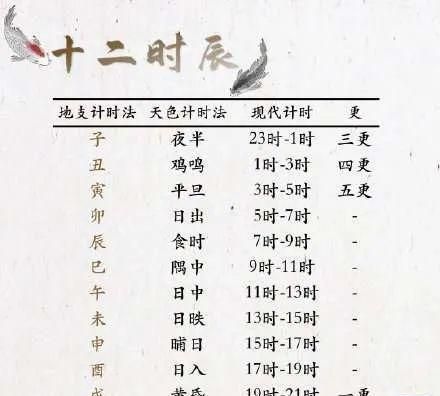 十二时辰
地支计时法 天色计时法 现代计时 更
子 夜半 23时-1时 三更
丑 鸡鸣 1时-3时 四更
寅 平旦 3时-5时 五更
卯 日出 5时-7时 -
辰 食时 7时-9时 -
巳 隅中 9时-11时 -
午 日中 11时-13时 -
未 日昳 13时-15时 -
申 晡日 15时-17时 -
酉 日入 17时-19时 -
戌 黄昏 19时-21时 一更